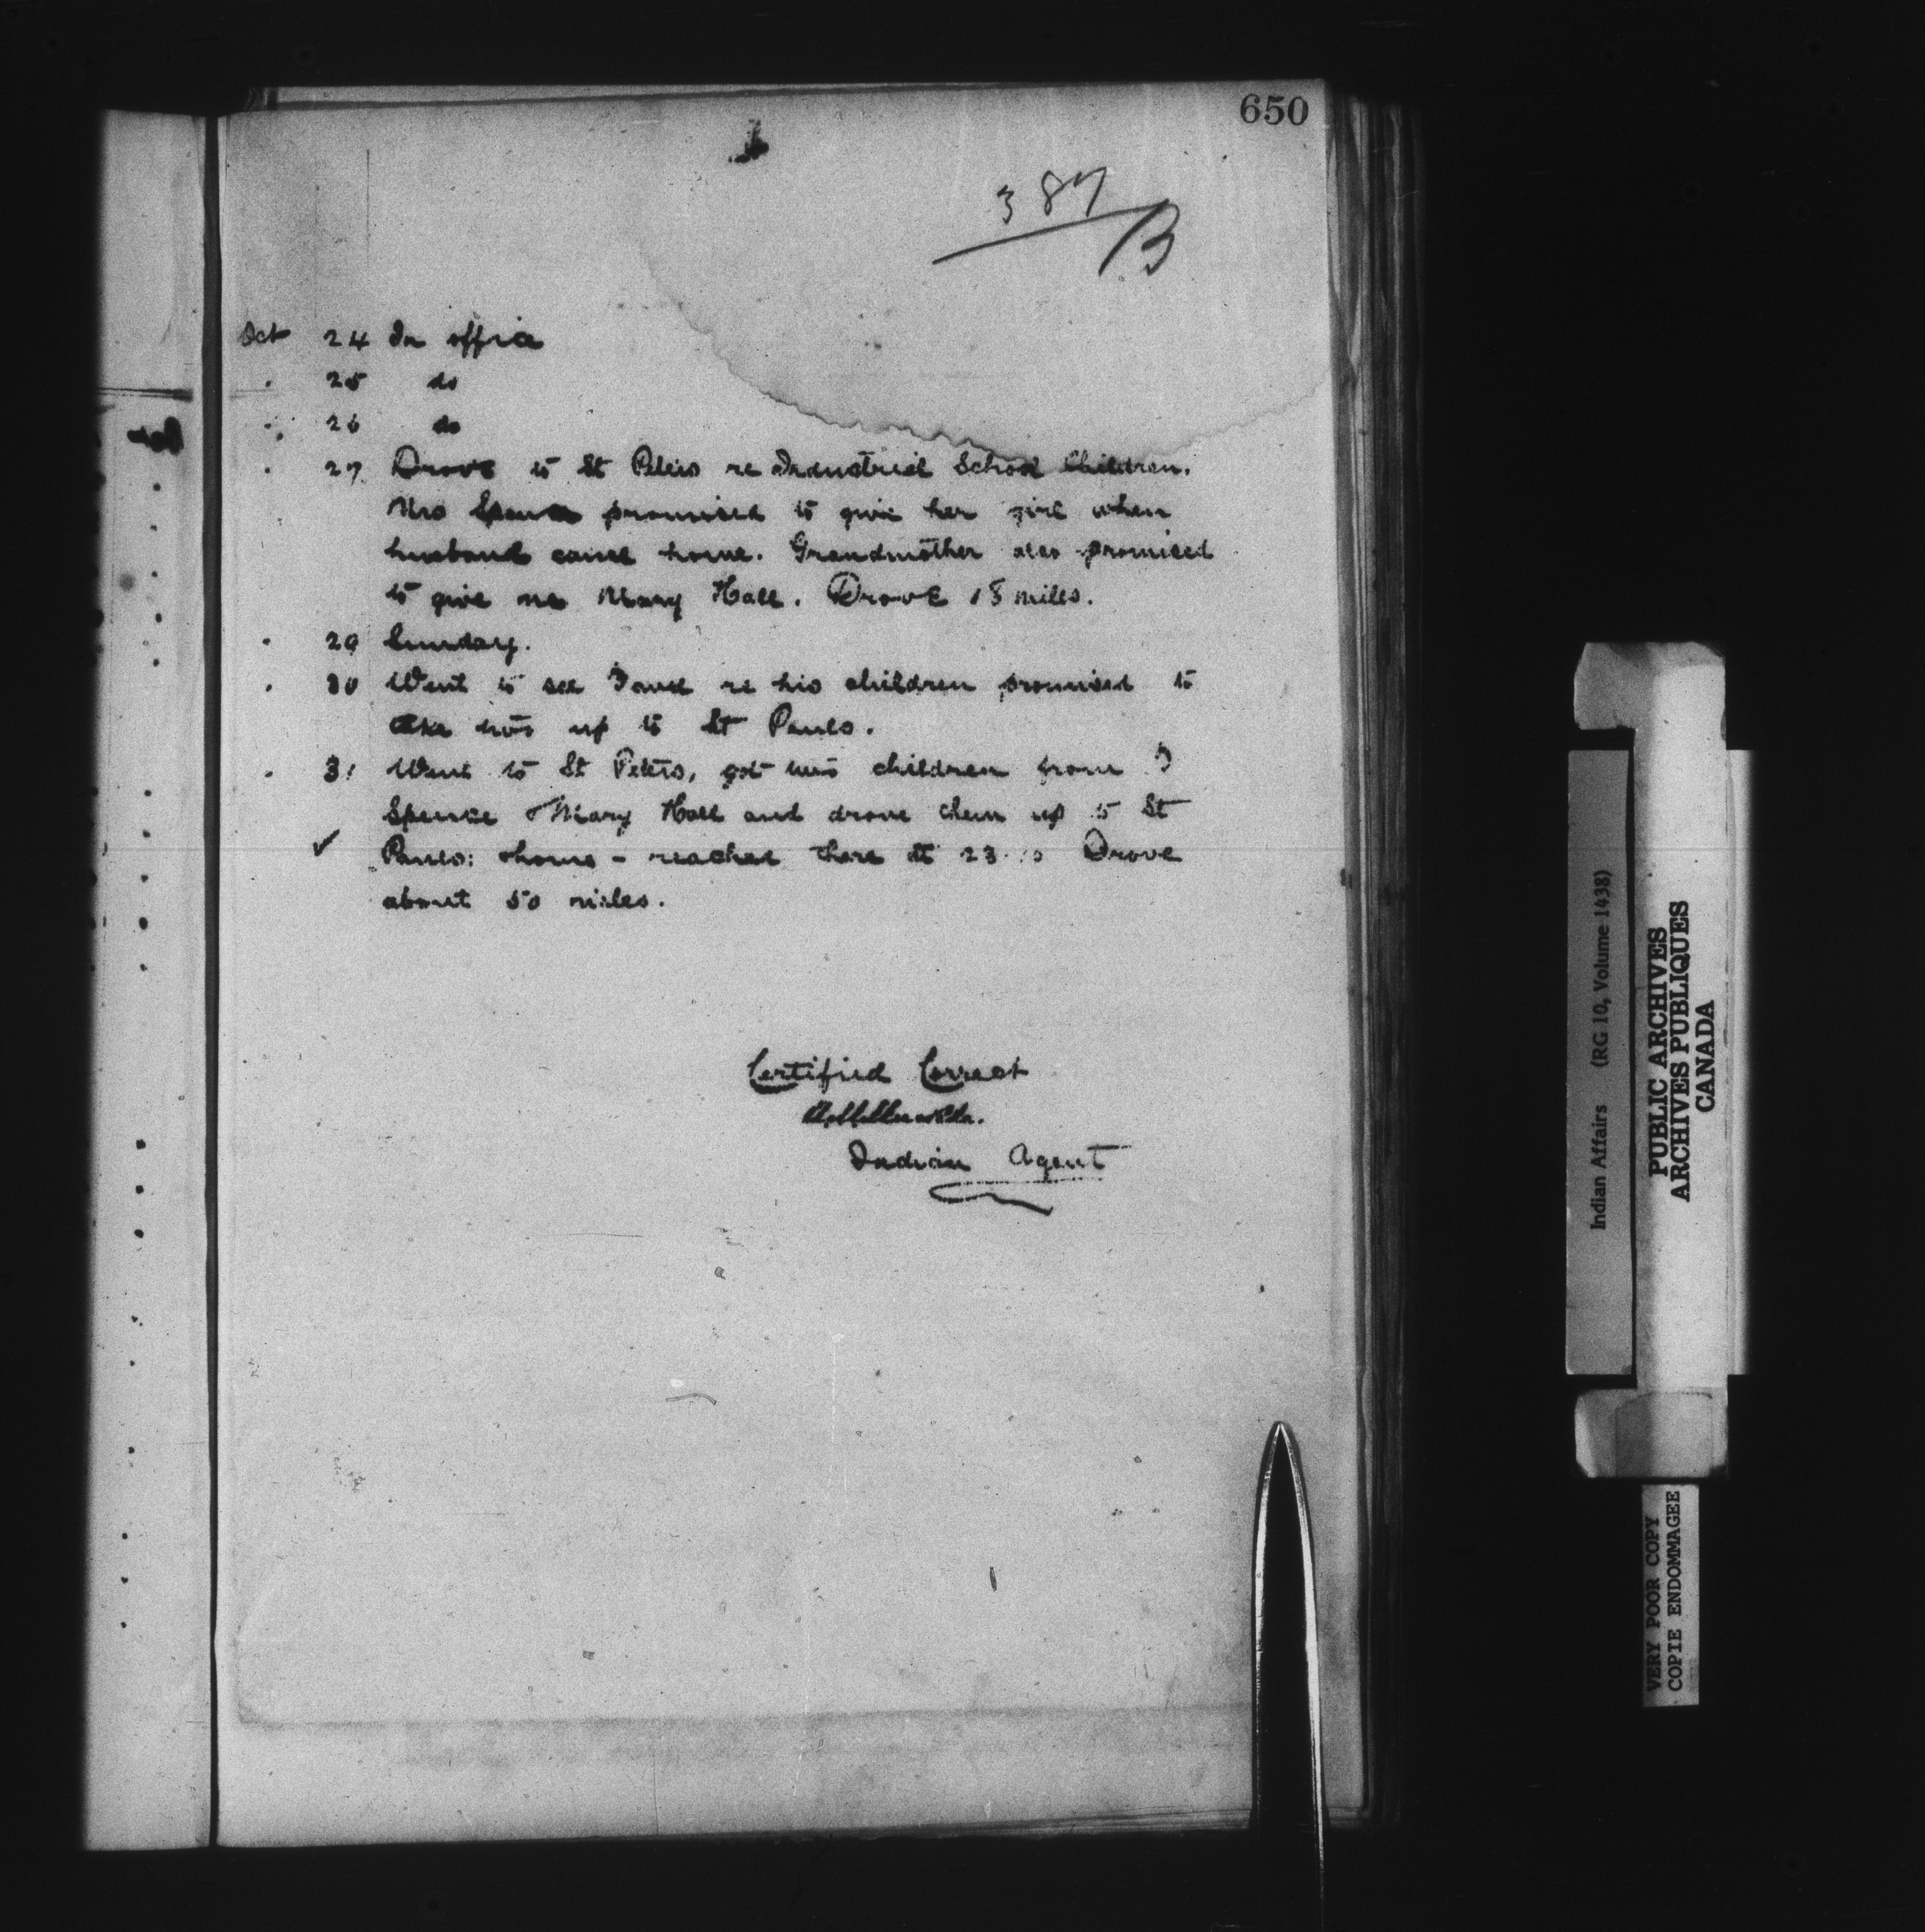 650
387
B
Oct 24 In office
" 25 do
" 26 do
" 27 Drove to St Peters re Industrial School Children.
Mrs Spence promised to give her girl when
husband came home. Grandmother also promised
to give me Mary Hall. Drove 18 miles.
" 29 Sunday.
" 30 Went to see re his children promised to
take up to St Pauls.
" 31 Went to St Peters, got two children from
Spence Mary Hall and drove them up to St
Pauls: home - reached there at 23. Drove
about 50 miles.
Certified Correct
Indian Agent
Indian Affairs (RG 10, Volume 1438)
PUBLIC ARCHIVES
ARCHIVES PUBLIQUES
CANADA
VERY POOR COPY
COPIE ENDOMMAGEE